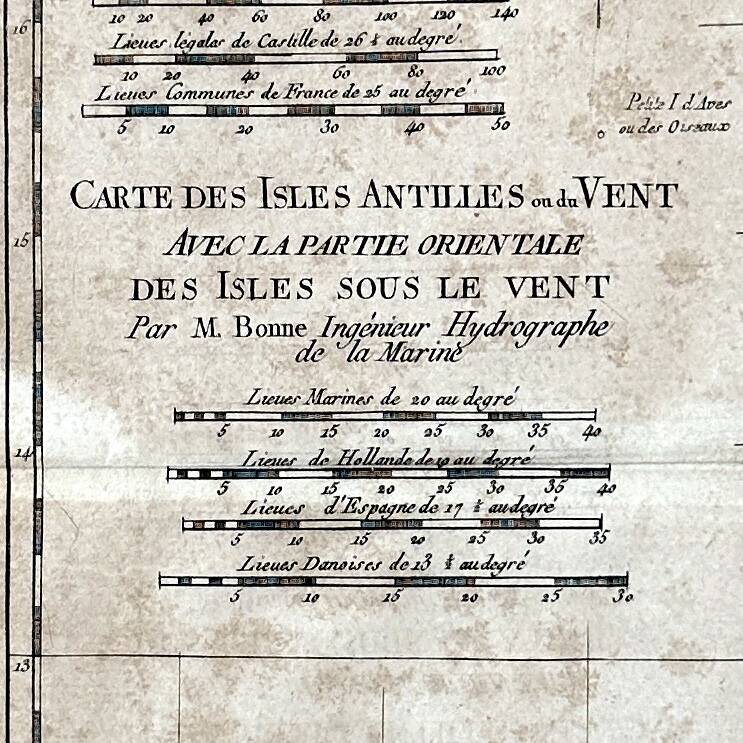 16
10 20 40 60 80 100 120 140
Lieues légales de Castille de 26 ½ au degré
10 20 40 60 80 100
Lieues Communes de France de 25 au degré
5 10 20 30 40 50
Petite I d'Aves
ou des Oiseaux
CARTE DES ISLES ANTILLES ou du VENT
15
AVEC LA PARTIE ORIENTALE
DES ISLES SOUS LE VENT
Par M. Bonne Ingénieur Hydrographe
de la Marine
Lieues Marines de 20 au degré
5 10 15 20 25 30 35 40
14
Lieues de Hollande de au degré
5 10 15 20 25 30 35 40
Lieues d'Espagne de 17 ½ au degré
5 10 15 20 25 30 35
Lieues Danoises de 13 au degré
5 10 15 20 25 30
13